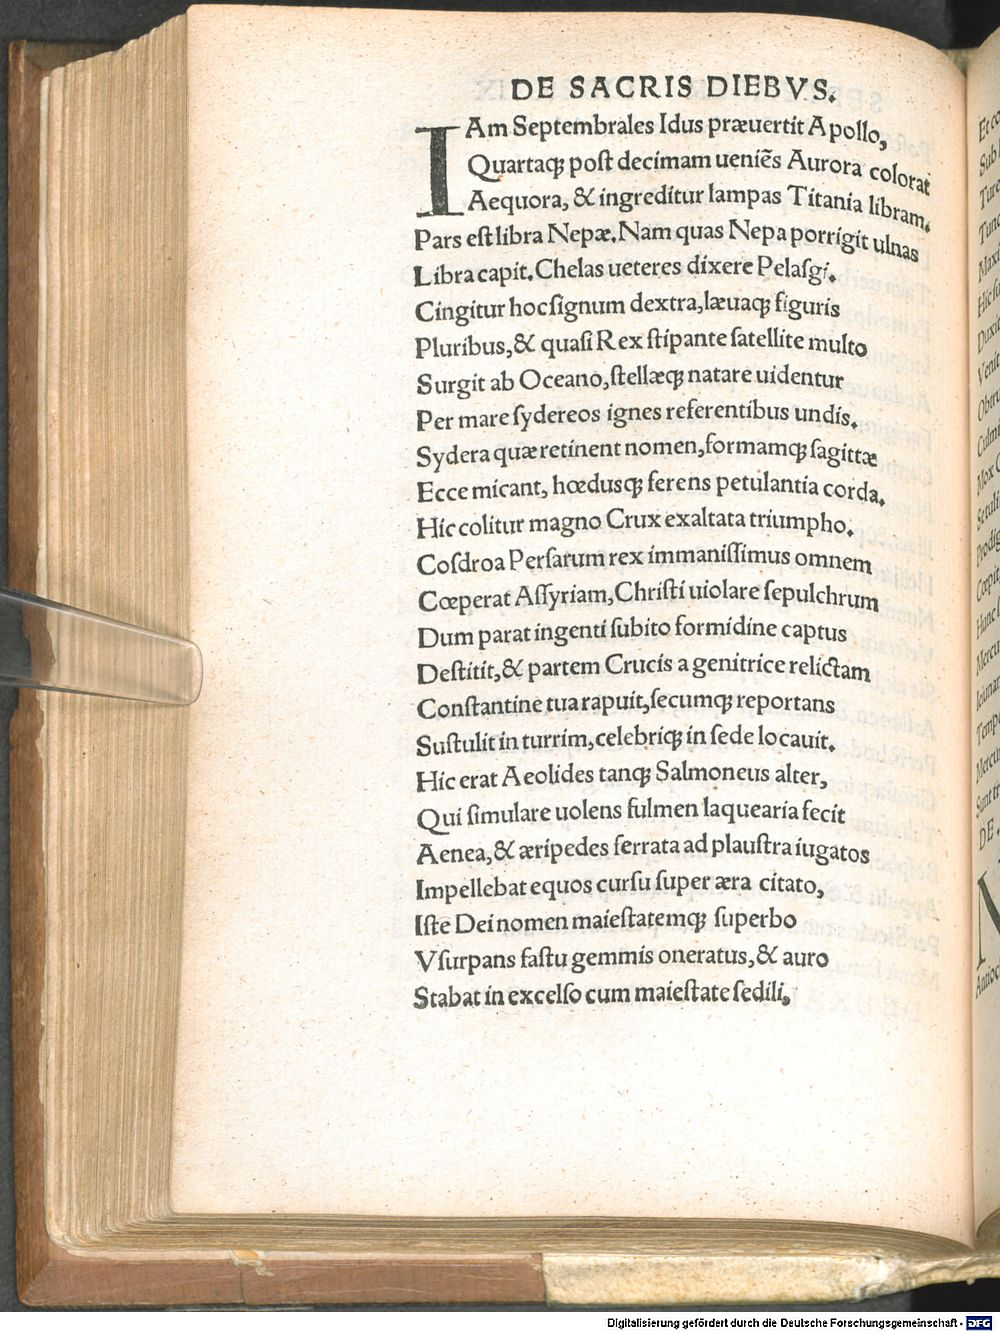 DE SACRIS DIEBVS.
IAm Septembrales Idus præuertit Apollo,
Quartaqꝫ poſt decimam ueniẽs Aurora colorat
Aequora, & ingreditur lampas Titania libram.
Pars eſt libra Nepæ. Nam quas Nepa porrigit ulnas
Libra capit. Chelas ueteres dixere Pelaſgi.
Cingitur hoc ſignum dextra, læuaqꝫ figuris
Pluribus, & quaſi Rex ſtipante ſatellite multo
Surgit ab Oceano, ſtellæqꝫ natare uidentur
Per mare ſydereos ignes referentibus undis.
Sydera quæ retinent nomen, formamqꝫ ſagittæ
Ecce micant, hœdusqꝫ ferens petulantia corda.
Hic colitur magno Crux exaltata triumpho.
Coſdroa Perſarum rex immaniſſimus omnem
Cœperat Aſſyriam, Chriſti uiolare ſepulchrum
Dum parat ingenti ſubito formidine captus
Deſtitit, & partem Crucis a genitrice relictam
Conſtantine tua rapuit, ſecumqꝫ reportans
Suſtulit in turrim, celebriqꝫ in ſede locauit.
Hic erat Aeolides tanqꝫ Salmoneus alter,
Qui ſimulare uolens fulmen laquearia fecit
Aenea, & æripedes ferrata ad plauſtra iugatos
Impellebat equos curſu ſuper æra citato,
Iſte Dei nomen maieſtatemqꝫ ſuperbo
Vſurpans faſtu gemmis oneratus, & auro
Stabat in excelſo cum maieſtate ſedili,
Et co
Sub
Turc
Tunc
Maxi
Hic ſu
Duxit
Venit
Obtru
Culmi
Mox C
Setuli
Prodig
Cœpit
Hunc
Mercu
Ieiunan
Tempo
Mercu
Sunt tr
DE
Antioc
Digitalisierung gefördert durch die Deutsche Forschungsgemeinschaft - DFG